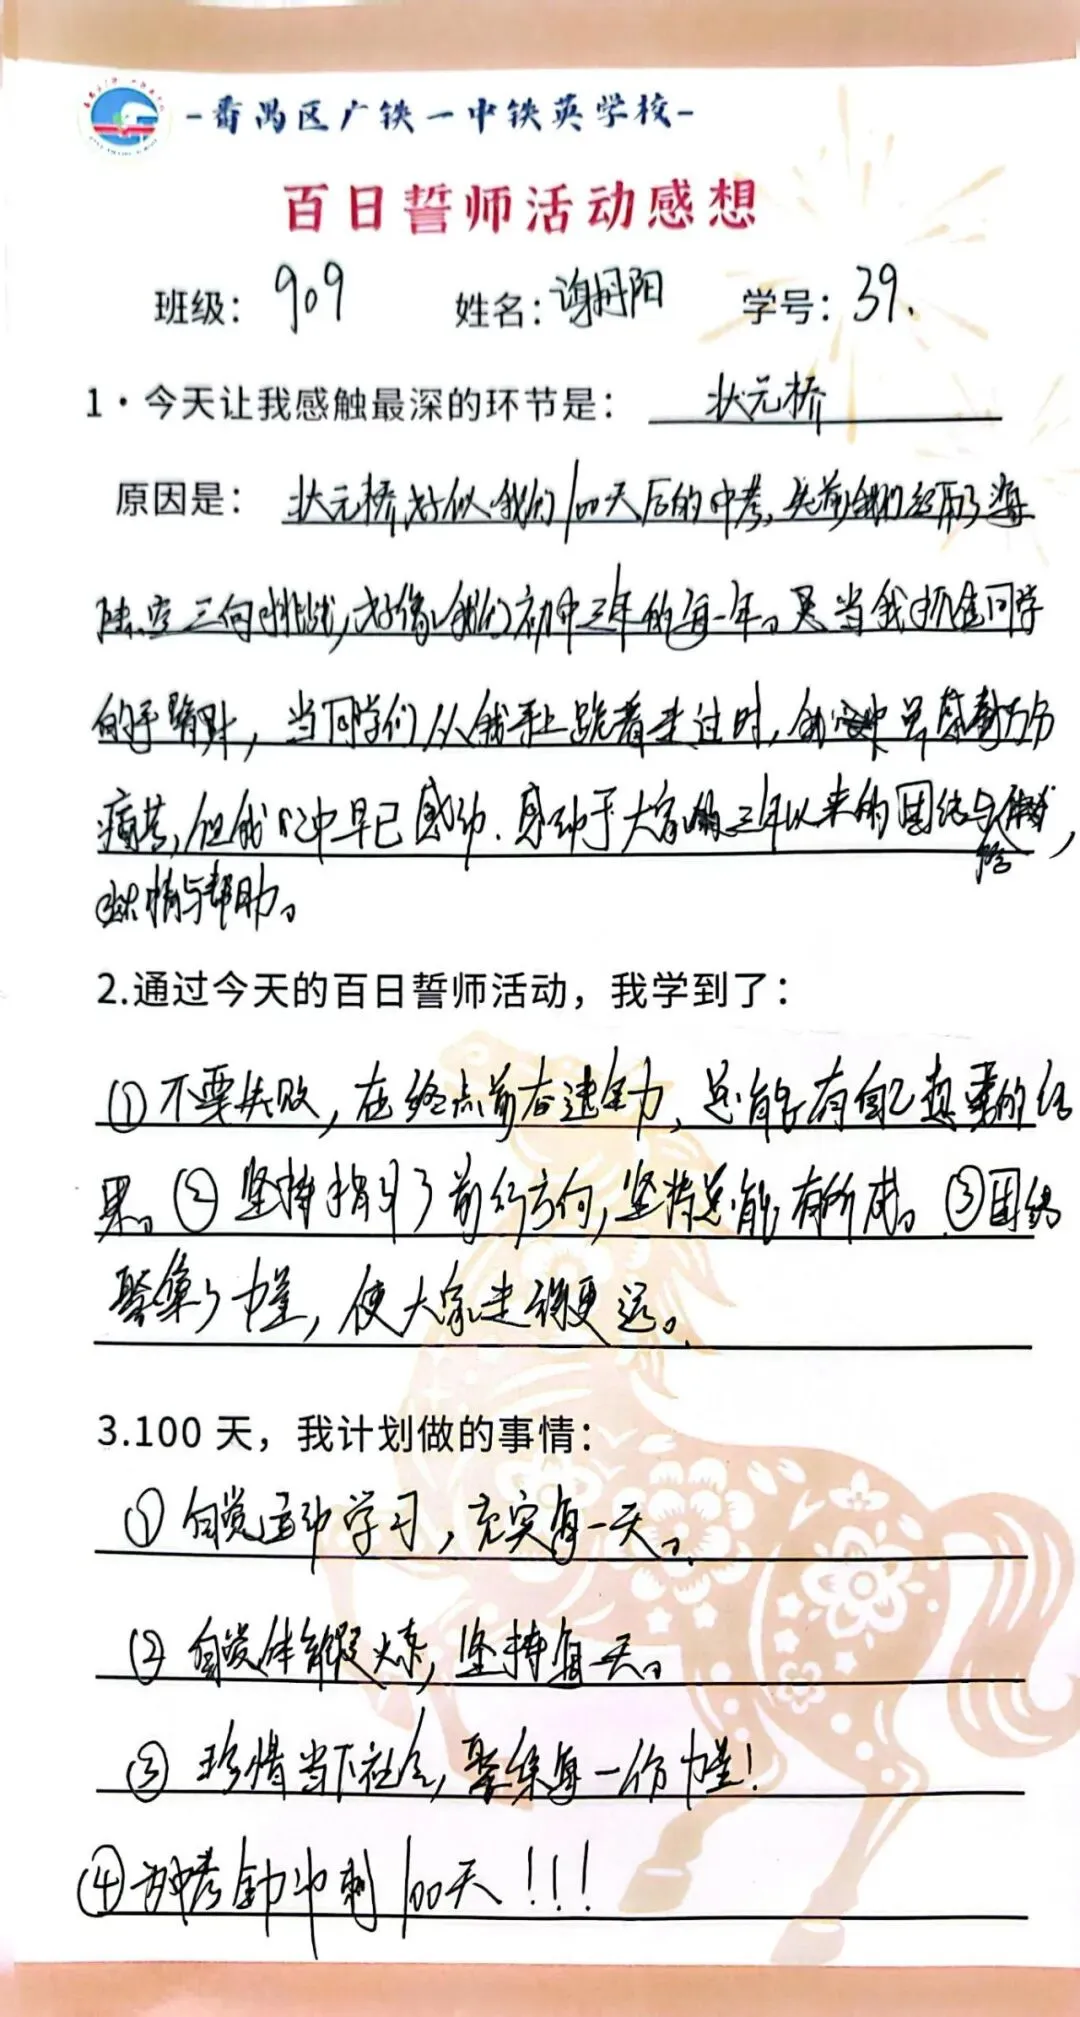 -番禺区广铁一中铁英学校-
百日誓师活动感想
班级：909 姓名：谢丹阳 学号：39.
1·今天让我感触最深的环节是：状元桥
原因是：状元桥好似我们100天后的中考，先前我们经历了海
陆空三向挑战，好像我们初中三年的每一年。当我抓住同学
的手臂时，当同学们从我手上跪着走过时，
痛苦，但我心中早已感动.感动于大家三年以来的团结与
友情与帮助。
2.通过今天的百日誓师活动，我学到了：
①不要失败，在终点前奋进全力，总能有自己想要的结
果。②坚持指引了前行方向，坚持总能有所成。③团结
聚集了力量，使大家走得更远。
3.100 天，我计划做的事情：
①自觉主动学习，充实每一天。
②自觉体能锻炼，坚持每一天。
③珍惜当下，聚集每一份力量！
④为中考全力冲刺100天！！！